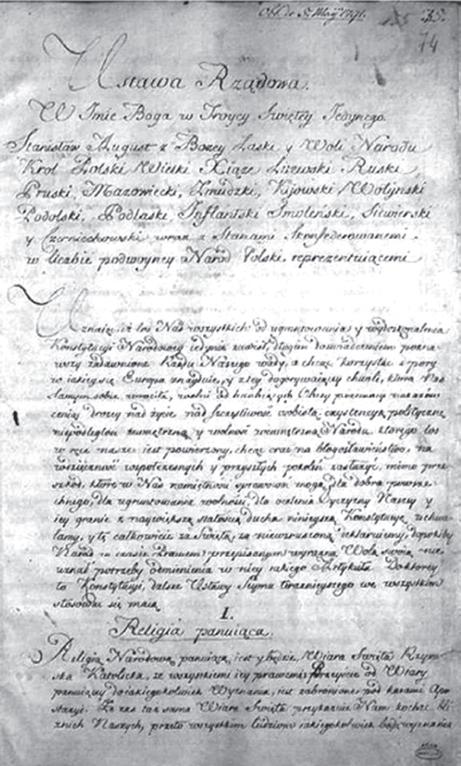 Ustawa Rządowa.
W Imie Boga w Troycy Swiętey Jedynego.
Stanisław August z Bożey Łaski y Woli Narodu
Krol Polski Wielki Xiąże Litewski Ruski
Pruski, Mazowiecki, Zmudzki, Kijowski Wołyński
Podolski, Podlaski, Inflantski Smoleński, Siewierski
y Czerniechowski wraz z Stanami Skonfederowanemi
w liczbie podwoyney Narod Polski reprezentuiącemi
Uznaiąc iż los Nas wszystkich od ugruntowania y wydoskonalenia
Konstytucyi Narodowey iedynie zawisł, długim doswiadczeniem pozna-
wszy zadawnione Rządu Naszego wady, a chcąc korzystać z pory
w iakiey się Europa znayduie, y z tey dogorywaiącey chwili, ktora Nas
samym sobie wrociła, wolni od hanbiących obcey przemocy nakazow
ceniąc drożey nad życie, nad szczęśliwość osobistą exystencyą polityczną
niepodległość zewnętrzną y wolność wewnętrzną Narodu, ktorego los
w ręce nasze iest powierzony, chcąc oraz na błogosławieństwo, na
wdzięczność wspołczesnych y przyszłych pokoleń zasłużyć, mimo prze-
szkod, ktore w Nas namiętności sprawować mogą, dla dobra powsze-
chnego, dla ugruntowania wolności, dla ocalenia Oyczyzny Naszey y
iey granic z naywiększą stałością ducha ninieyszą Konstytucyę uchwa-
lamy, y tę całkowicie za świętą za niewzruszoną deklaruiemy, dopokiby
Narod w czasie Prawem przepisanym wyraźną Wolą swoią nie
uznał potrzeby odmienienia w niey iakiego Artykułu. Do ktorey
to Konstytucyi, dalsze Ustawy Seymu teraznieyszego we wszystkim
stosować się maią.
I.
Religia panuiąca.
Religią Narodową panuiącą, iest y będzie Wiara Swięta Rzym-
ska Katolicka, ze wszystkiemi iey prawami. Przeyscie od Wiary
panuiącey do iakiegokolwiek Wyznania, iest zabronione pod karami Apo-
stazyi. Ze zaś taż sama Wiara Swięta przykazuie Nam kochać bli-
źnich Naszych, przeto wszystkim ludziom iakiegokolwiek bądź wyznania